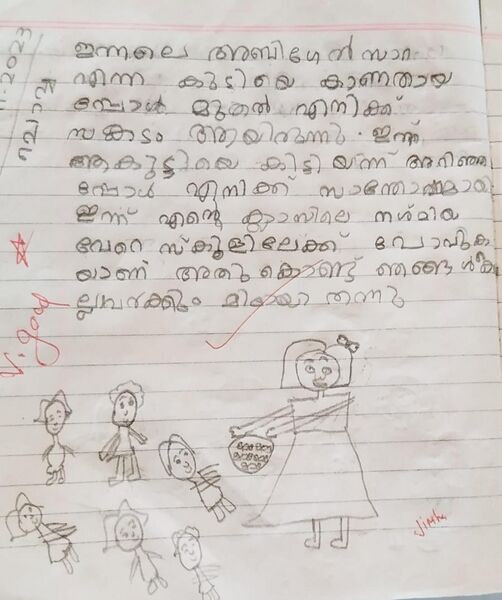 ഇന്നലെ അബിഗേൽ സാറ
എന്ന കുട്ടിയെ കാണതായ
പ്പോൾ മുതൽ എനിക്ക്
സങ്കടം ആയിരുന്നു. ഇന്ന്
ആകുട്ടിയെ കിട്ടിയന്ന് അറിഞ്ഞ
പ്പോൾ എനിക്ക് സന്തോഷമായി
ഇന്ന് എന്റെ ക്ലാസിലെ നശ്മിയ
വേറെ സ്കൂളിലേക്ക് പോവുക
യാണ് അതു കൊണ്ട് ഞങ്ങൾക്ക്
ല്ലവർക്കും മിഠായി തന്നു
V. good